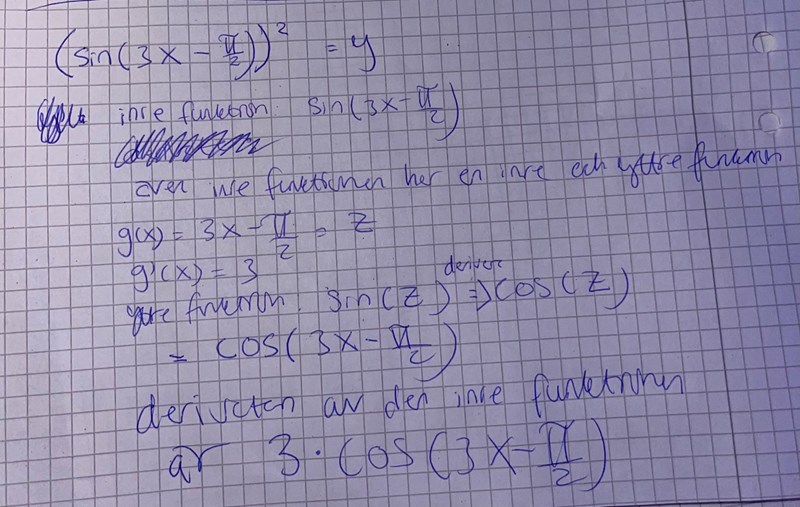 (sin(3x - π/2))² = y
inre funktion sin(3x - π/2)
även inre funktionen har en inre och yttre funktion
g(x) = 3x - π/2 = z
g'(x) = 3
derivera
yttre funktion: sin(z) => cos(z)
= cos(3x - π/2)
derivatan av den inre funktionen
är 3 · cos(3x - π/2)